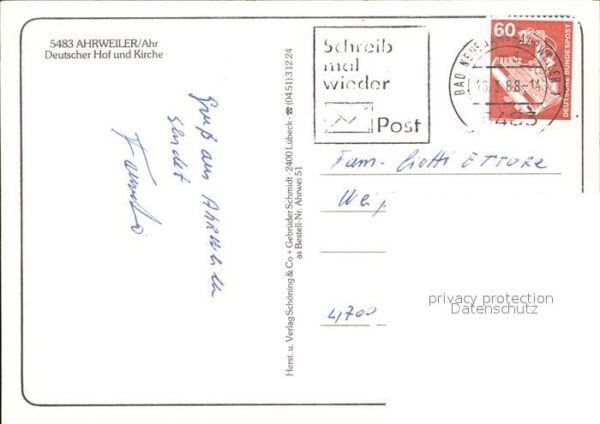 5483 AHRWEILER/Ahr
Deutscher Hof und Kirche
Gruß aus Ahrweiler
sendet
Herst. u. Verlag Schöning & Co + Gebrüder Schmidt · 2400 Lübeck · ☎ (0451) 31224
as Bestell-Nr. Ahrwei 51
Schreib
mal
wieder
Post
BAD NEUENAHR-AHRWEILER 1
5483
60
DEUTSCHE BUNDESPOST
Fam. Ciotti ETTORE
4700
privacy protection
Datenschutz